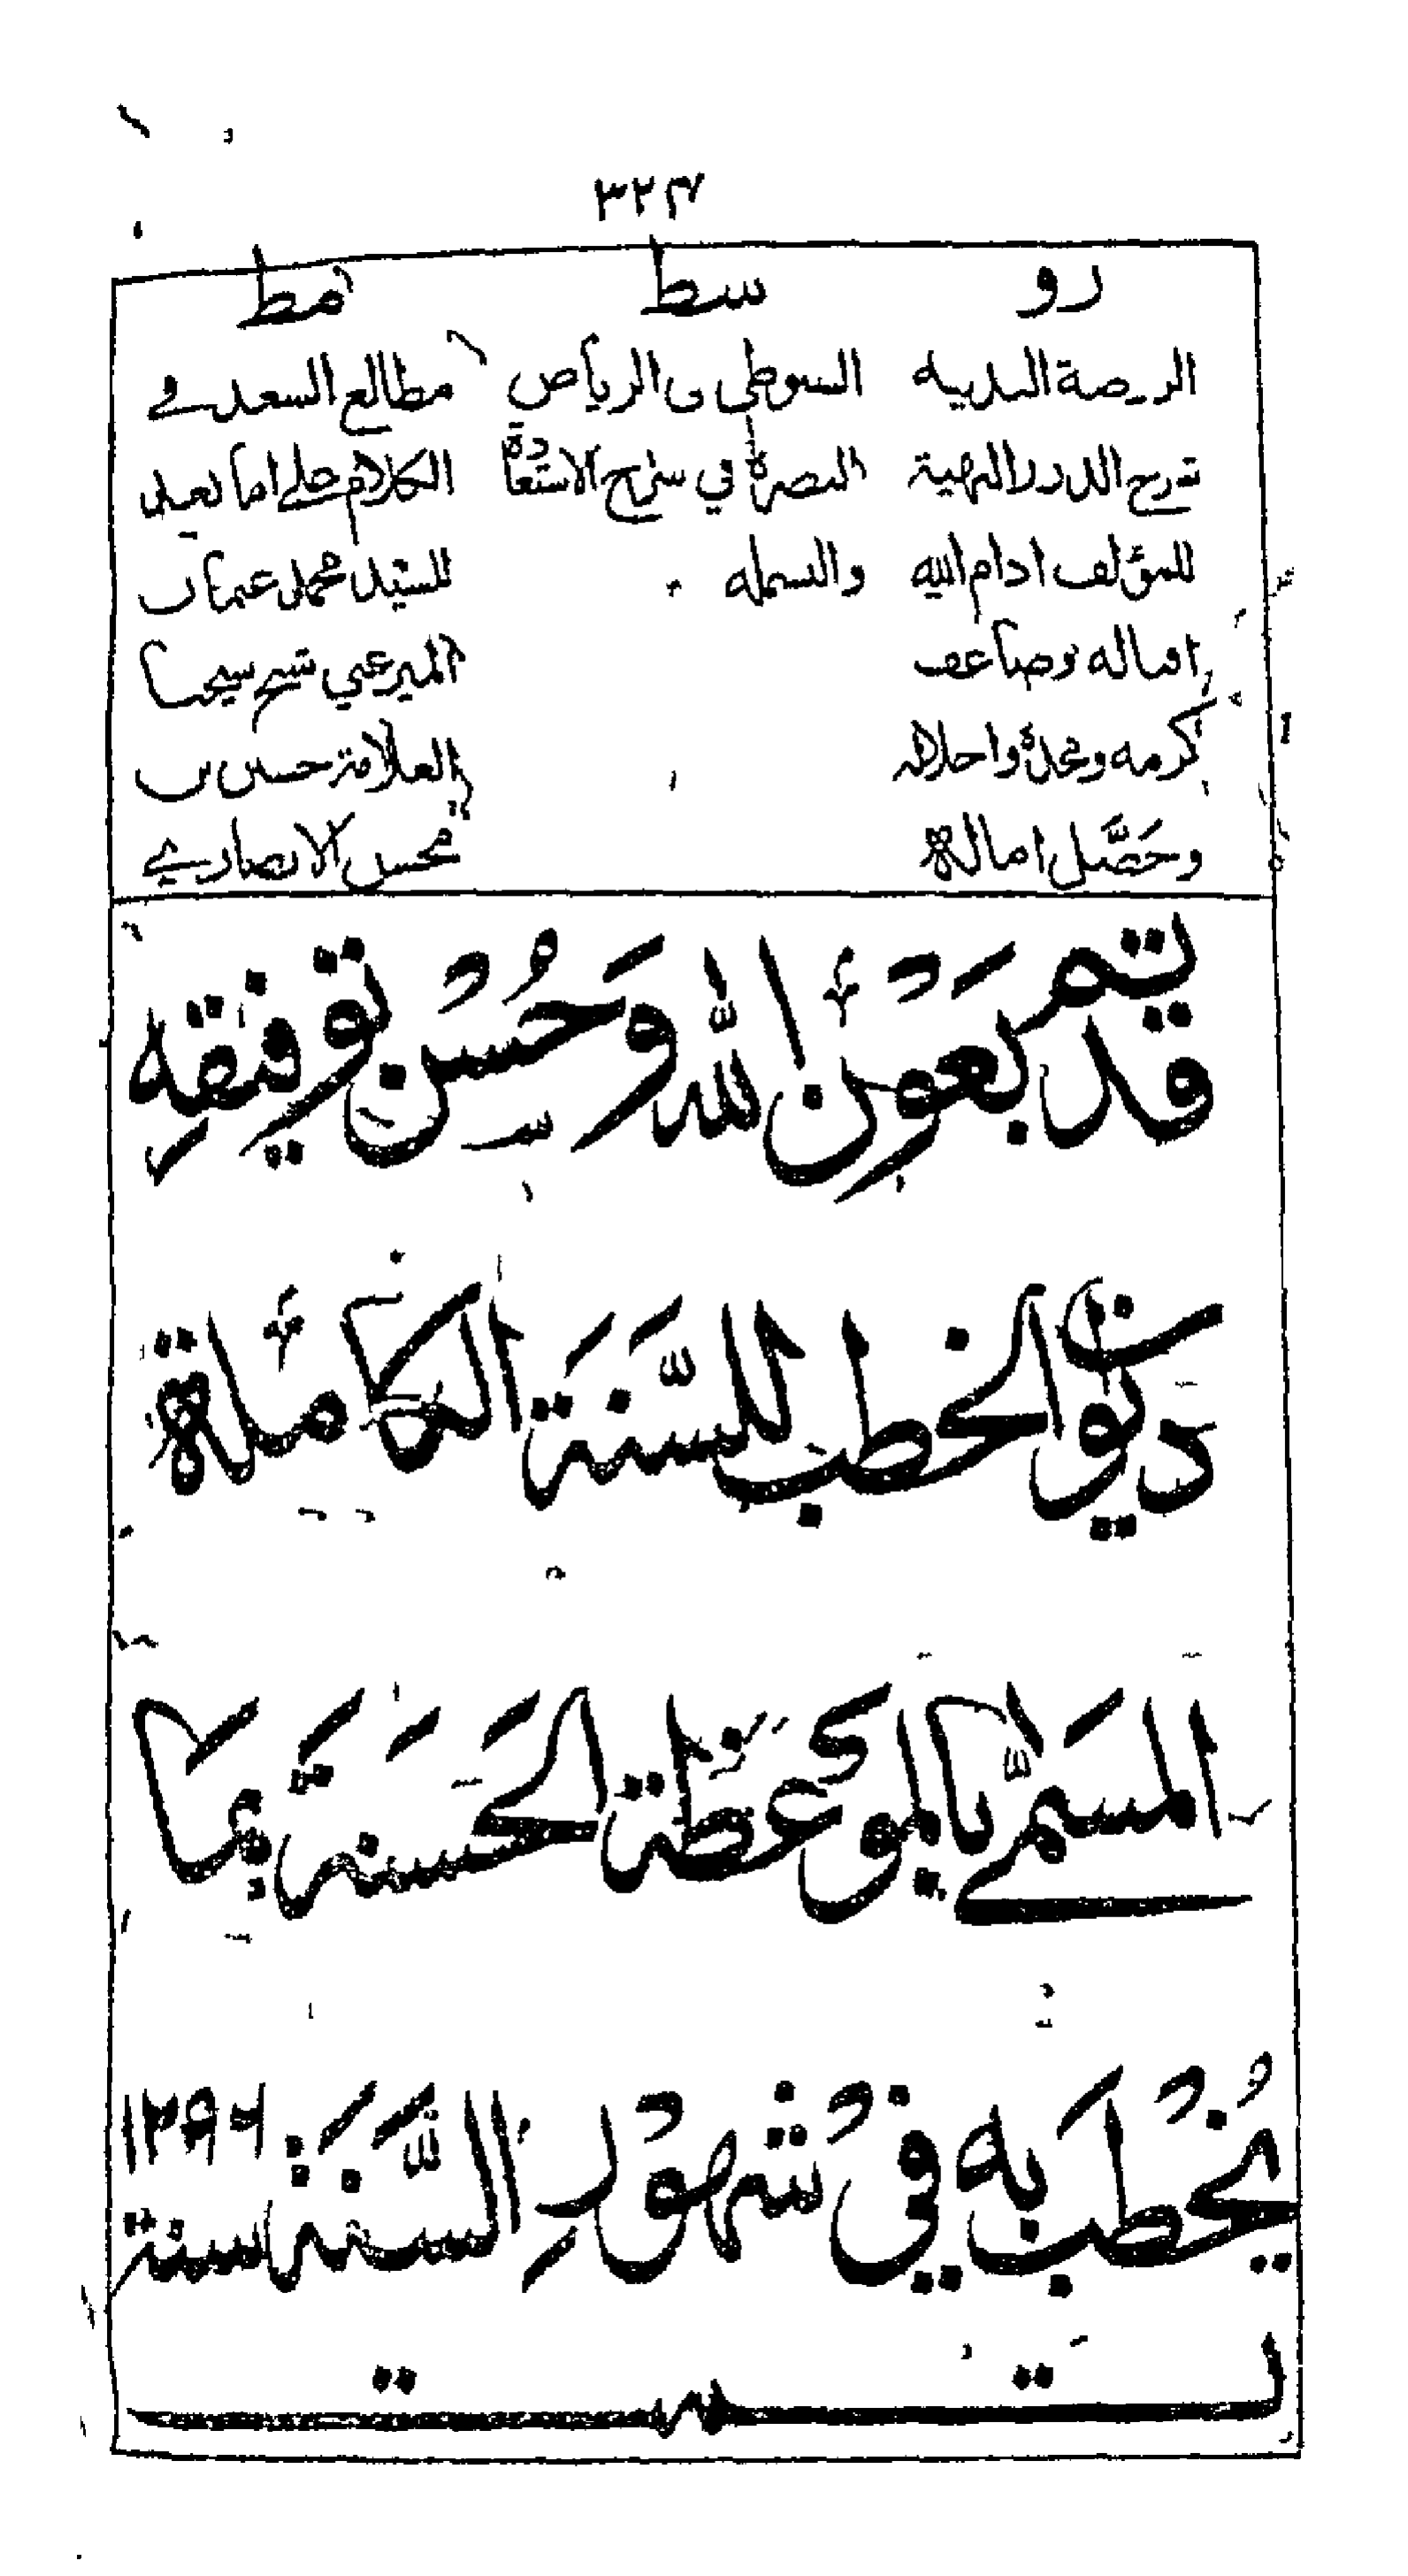 ٣٢٤
رو سط مط
الروضة الندية السيوطي في الرياض مطالع السعد في
شرح الدرر البهية النضرة في شرح الاستعاذة الكلام على اما بعد
للمؤلف ادام الله والبسملة للسيد محمد عثمان
اقباله وضاعف الميرغني شيخ شيخنا
كرمه ومجده واجلاله العلامة حسين بن
وحصَّل اماله محسن الانصاري
قد تم بعَوْن اللّٰه وَحُسْن توفيقهِ
ديوان الخطب للسَّنَة الكاملة
المسَمّٰى بالموعظة الحَسَنَة بمَا
يُخْطَب به فيْ شهُوْرِ السَّنَة سنة ١٢٩٦
تمت